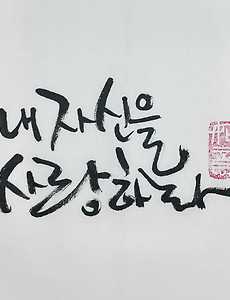 내 자신을
사랑하라